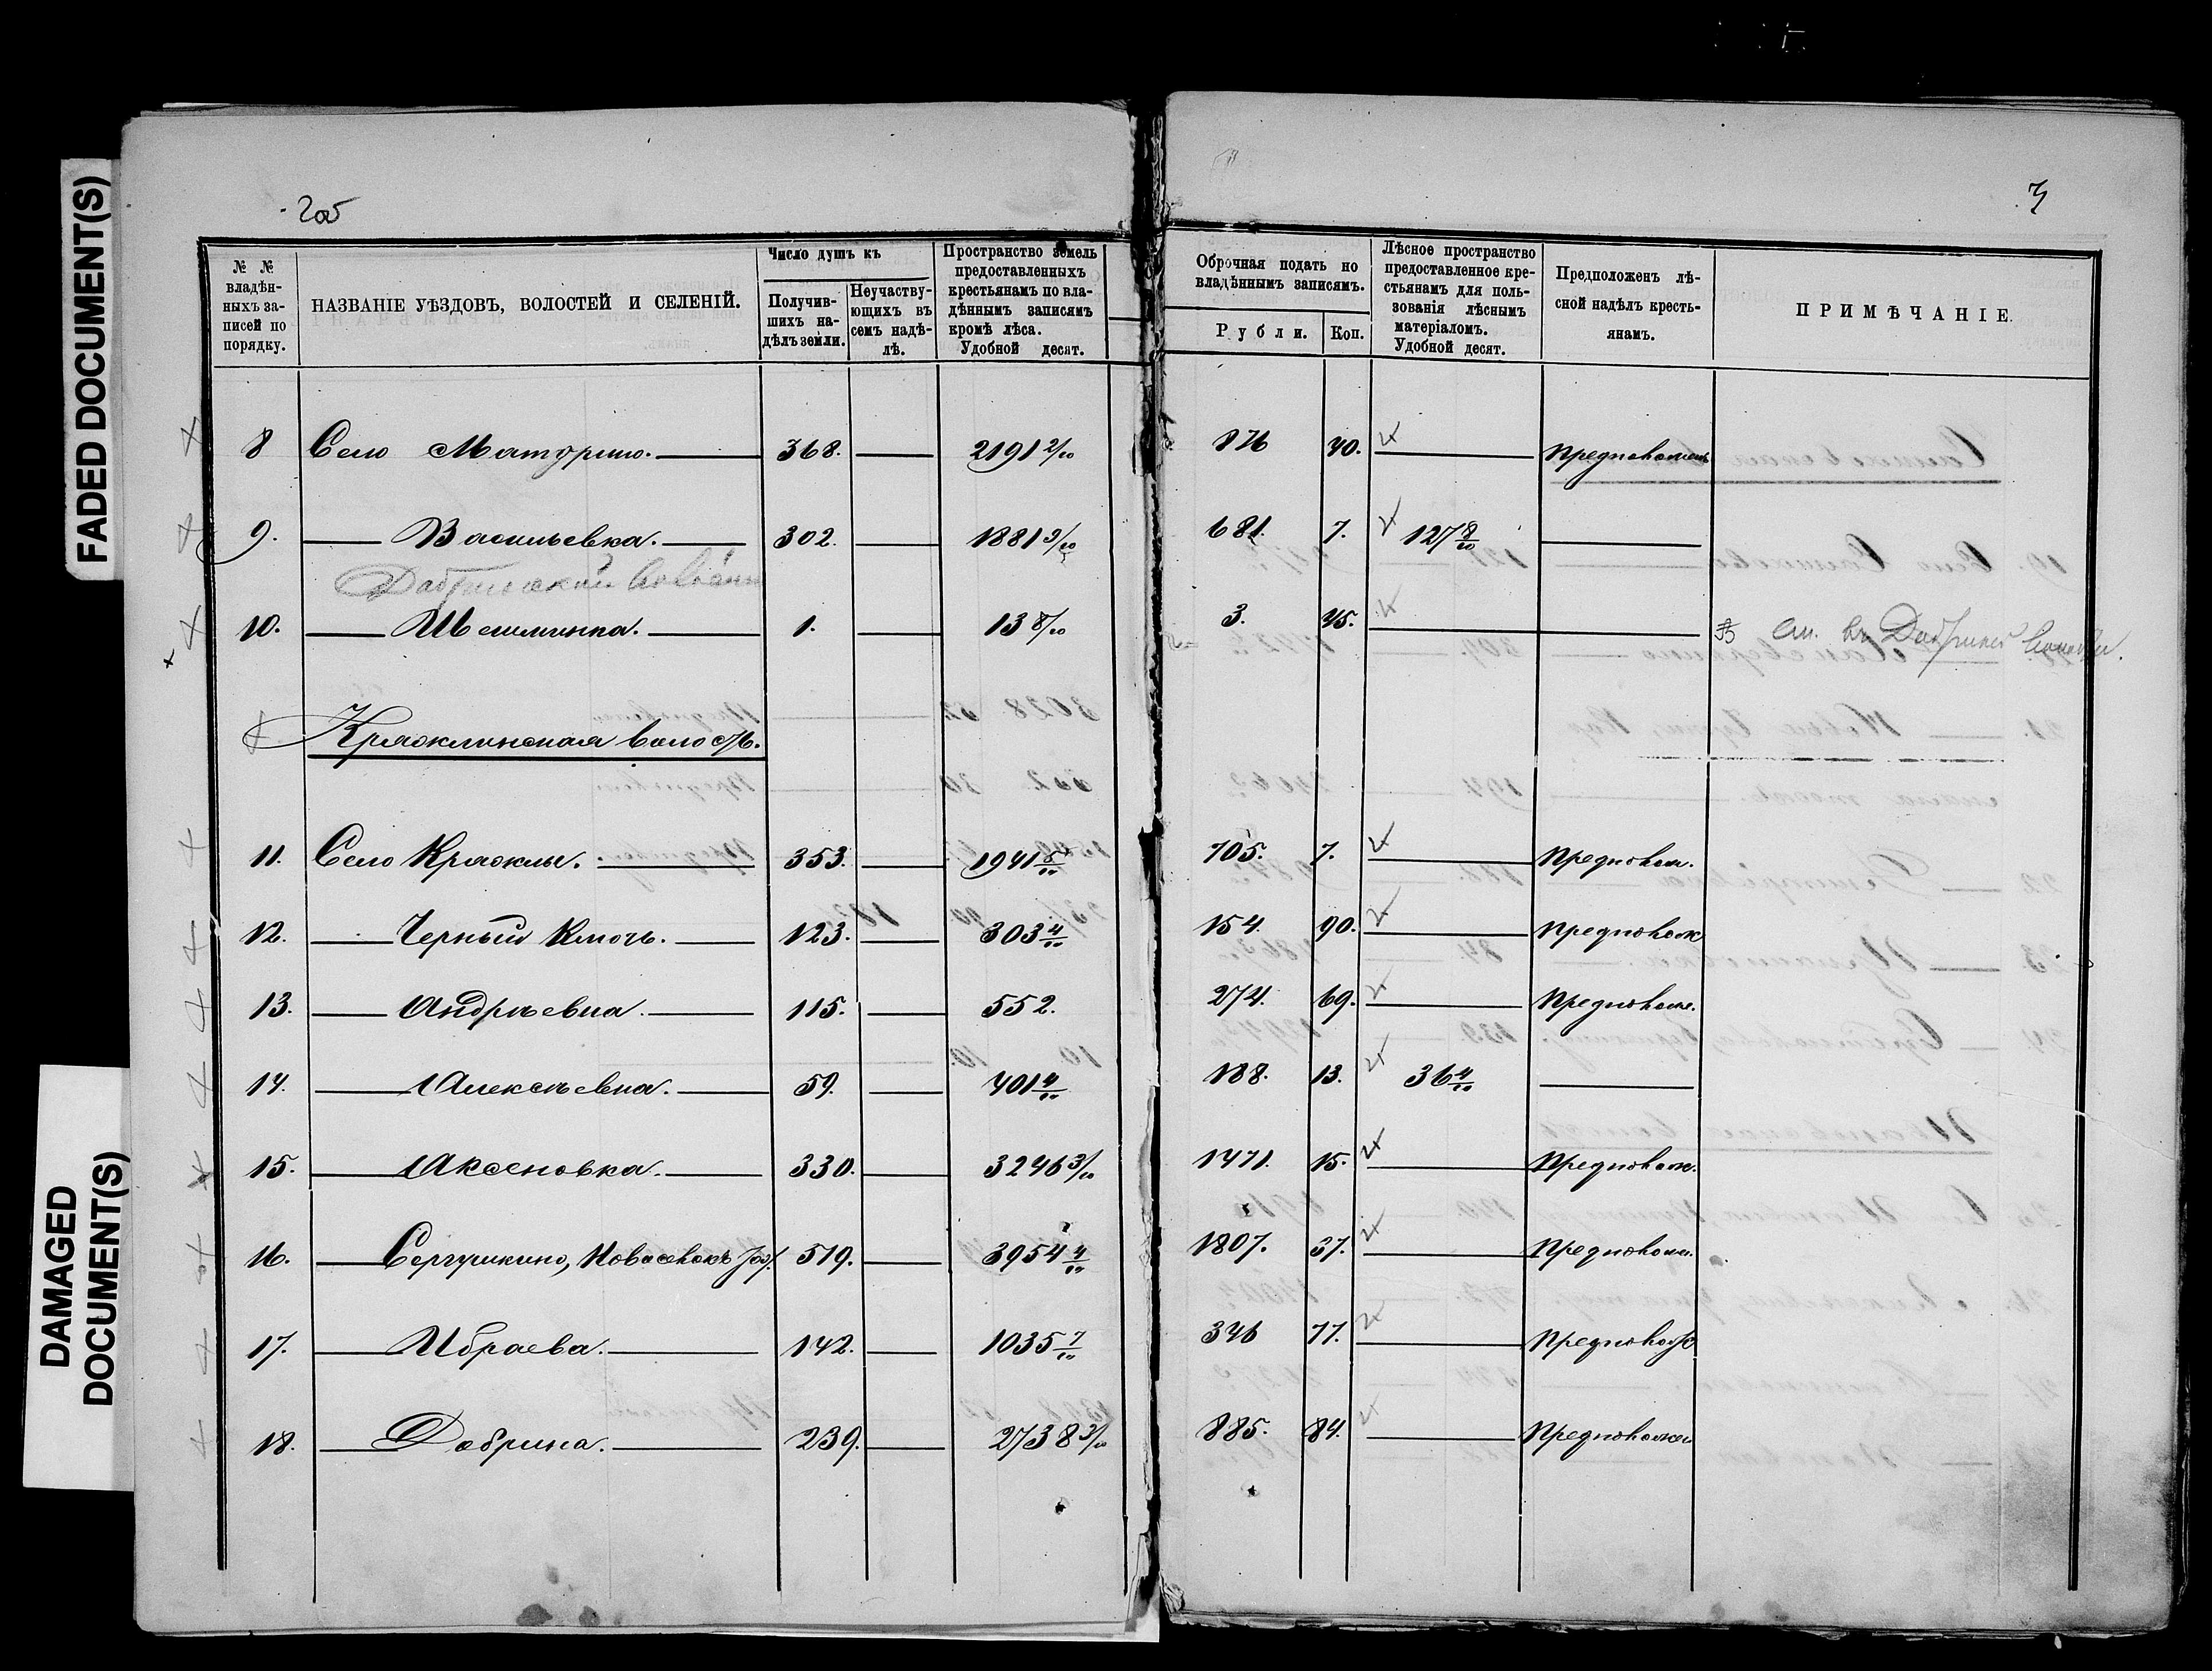 FADED DOCUMENT(S)
DAMAGED
DOCUMENT(S)
2об
3
№ №
владѣн-
ныхъ за-
писей по
порядку.
НАЗВАНІЕ УѢЗДОВЪ, ВОЛОСТЕЙ И СЕЛЕНІЙ.
Число душъ къ
Получив-
шихъ на-
дѣлъ земли.
Неучаству-
ющихъ въ
семъ надѣ-
лѣ.
Пространство земель
предоставленныхъ
крестьянамъ по вла-
дѣннымъ записямъ
кромѣ лѣса.
Удобной десят.
Оброчная подать по
владѣннымъ записямъ.
Рубли. Коп.
Лѣсное пространство
предоставленное кре-
стьянамъ для поль-
зованія лѣснымъ
матеріаломъ.
Удобной десят.
Предположенъ лѣ-
сной надѣлъ кресть-
янамъ.
ПРИМѢЧАНІЕ.
8 Село 368. 2191 2/10 876 40. Предположенъ
9. Васильевка. 302. 1881 9/10 681. 7. 127 8/10
10. Шешминка. 1. 13 8/10 3. 45. См. въ
Кряжлинская волость.
11. Село Кряжлы. 353. 1941 5/10 705. 7. Предполож.
12. Черный Ключъ. 123. 303 4/10 154. 90. Предполож
13. Андрѣевка. 115. 552. 274. 69. Предполож.
14. Алексѣевка. 59. 401 4/10 188. 13. 36 4/10
15. Аксеновка. 330. 3246 3/10 1471. 15. Предполож.
16. Сергушкино, 519. 3954 4/10 1807. 37. Предполож.
17. Ибраева. 142. 1035 7/10 346 77. Предполож
18. Добрина. 239. 2738 3/10 885. 84. Предположен